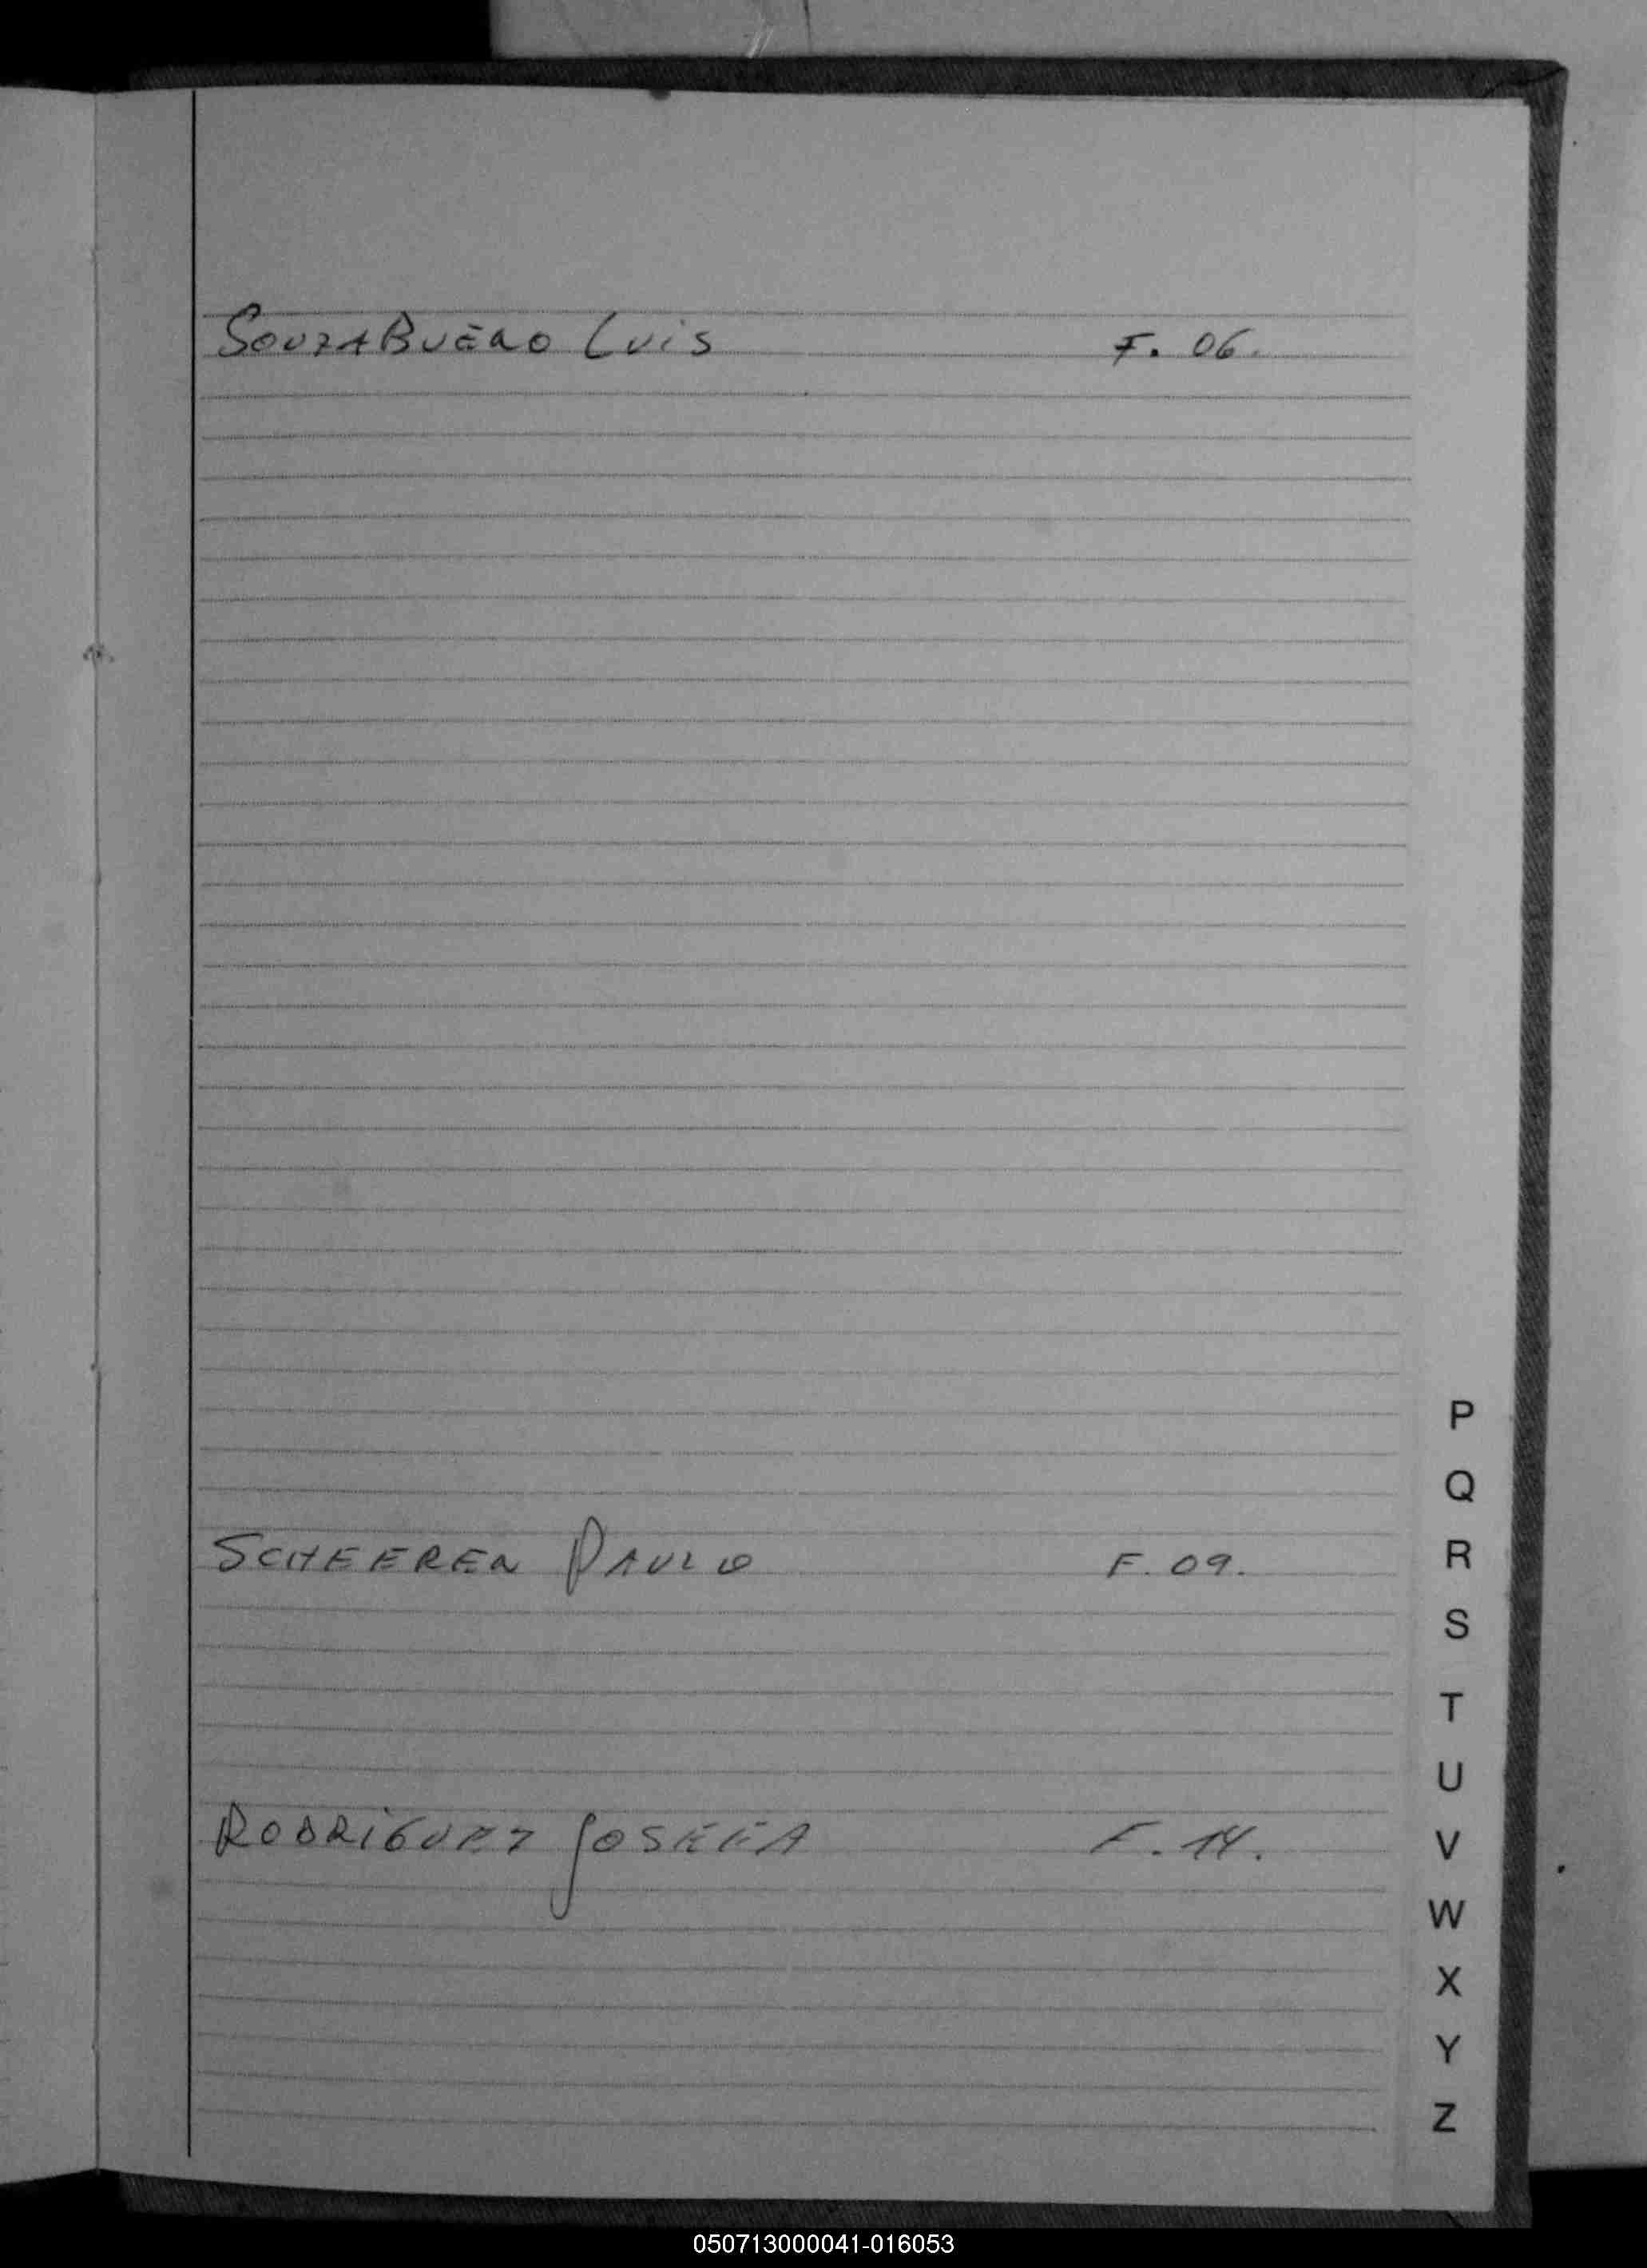 SOUZA BUENO LUIS F. 06.
P
Q
SCHEEREN PAULO F. 09.
R
S
T
U
RODRIGUEZ JOSEFA F. 14.
V
W
X
Y
Z
050713000041-016053